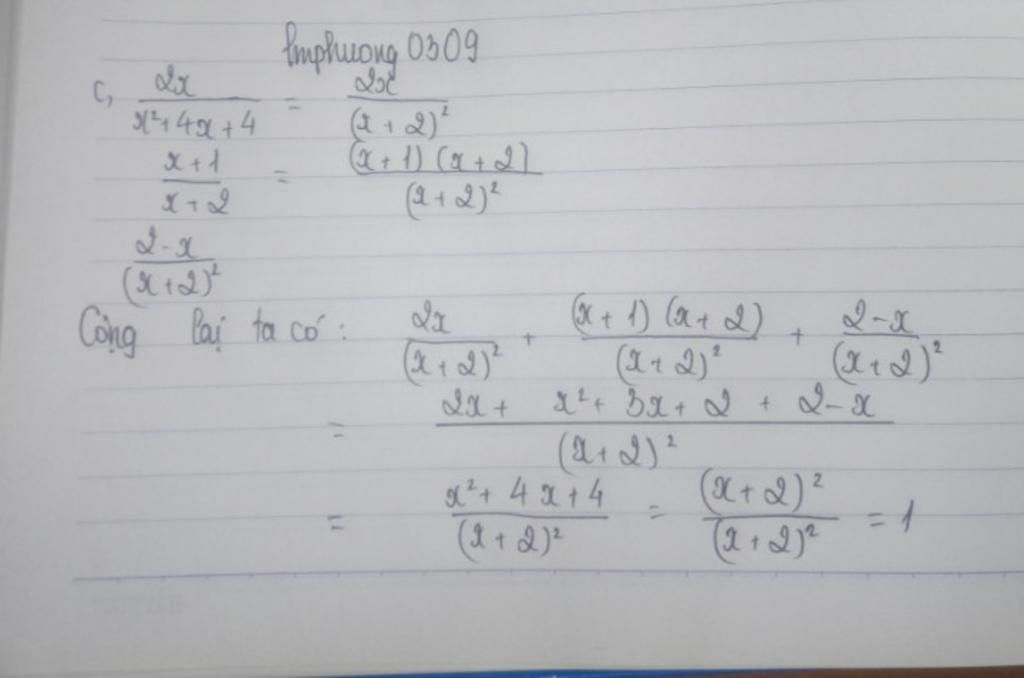 lmphuong 0309
c, 2x / x²+4x+4 = 2x / (x+2)²
x+1 / x+2 = (x+1)(x+2) / (x+2)²
2-x / (x+2)²
Cộng lại ta có: 2x / (x+2)² + (x+1)(x+2) / (x+2)² + 2-x / (x+2)²
= 2x + x²+3x+2 + 2-x / (x+2)²
= x²+4x+4 / (x+2)² = (x+2)² / (x+2)² = 1